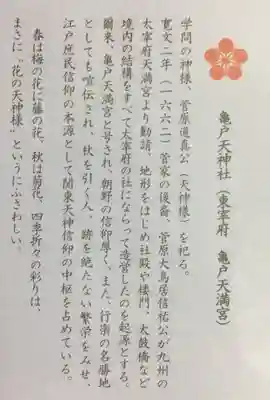 亀戸天神社（東宰府　亀戸天満宮）
学問の神様、菅原道真公（天神様）を祀る。
寛文二年（一六六二）菅家の後裔、菅原大鳥居信祐公が九州の
太宰府天満宮より勧請、地形をはじめ社殿や楼門、太鼓橋など
境内の結構をすべて太宰府の社にならって造営したのを起源とする。
爾来、亀戸天満宮と号され、朝野の信仰厚く、また、行楽の名勝地
としても喧伝され、杖を引く人、跡を絶たない繁栄をみせ、
江戸庶民信仰の本源として関東天神信仰の中枢を占めている。
春は梅の花に藤の花、秋は菊花、四季折々の彩りは、
まさに"花の天神様"というにふさわしい。